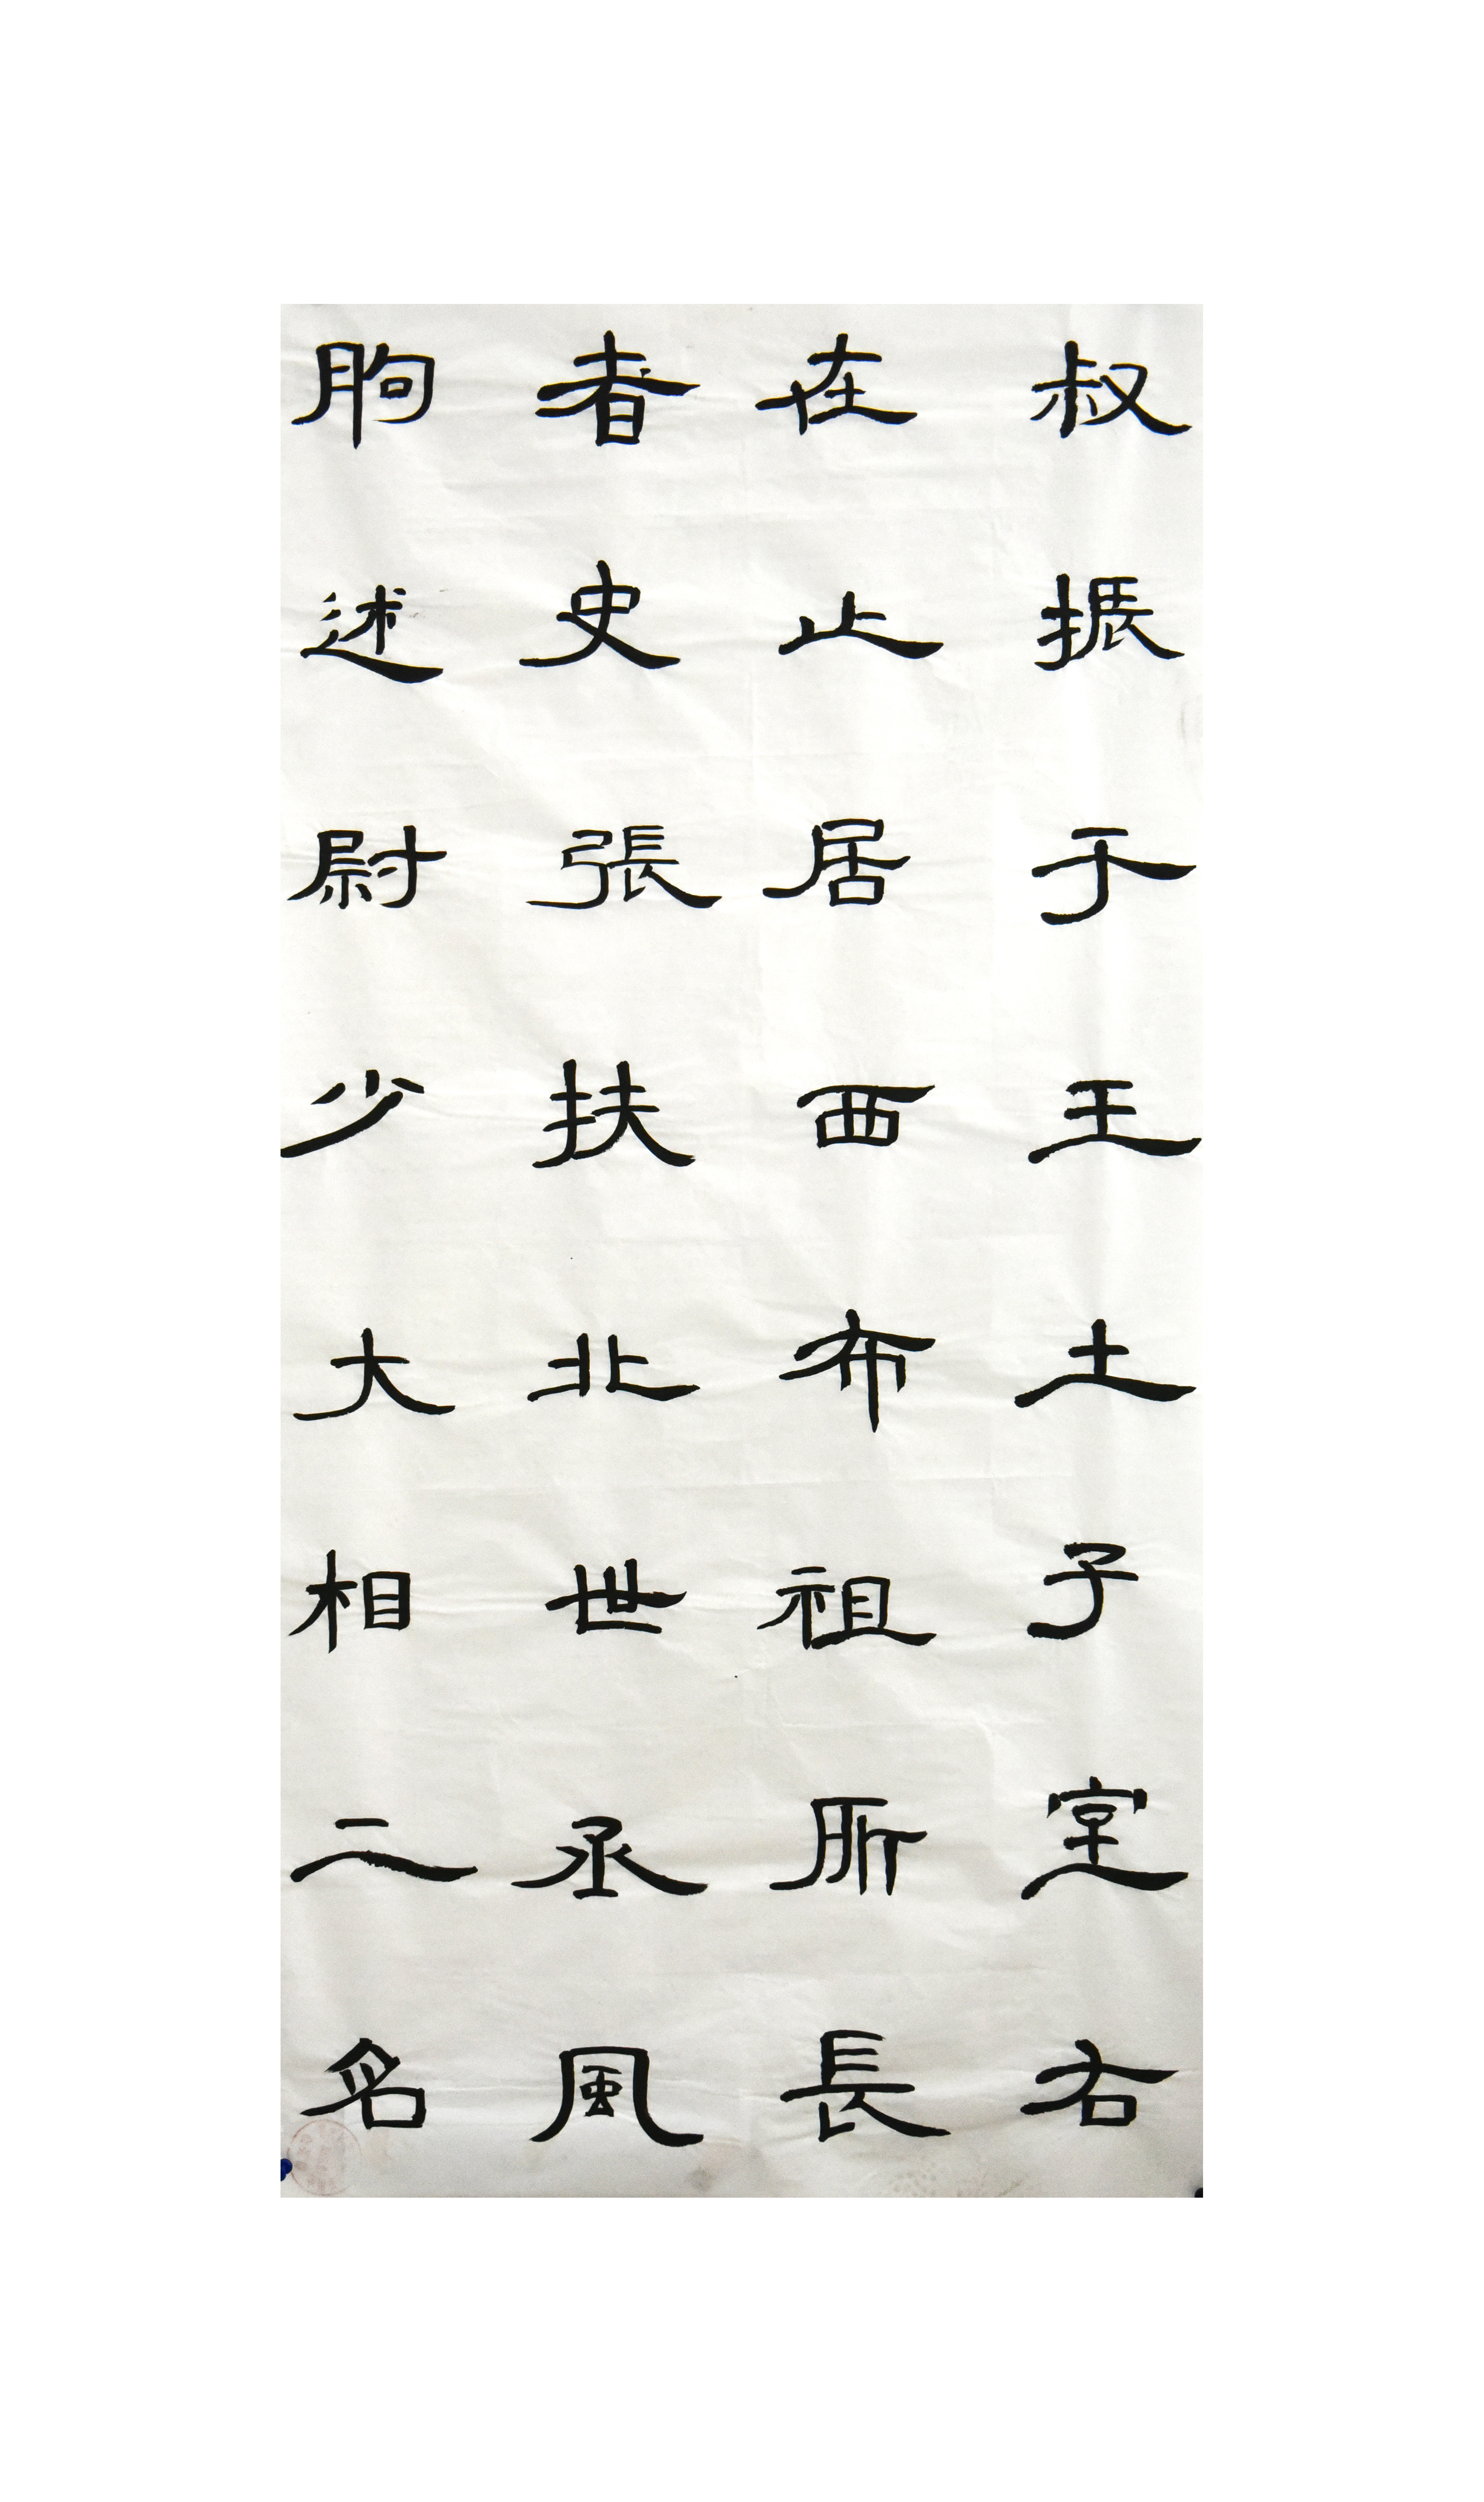 叔振于王土子室右
在止居西布祖所長
者史張扶北世丞風
朐述尉少大相二名